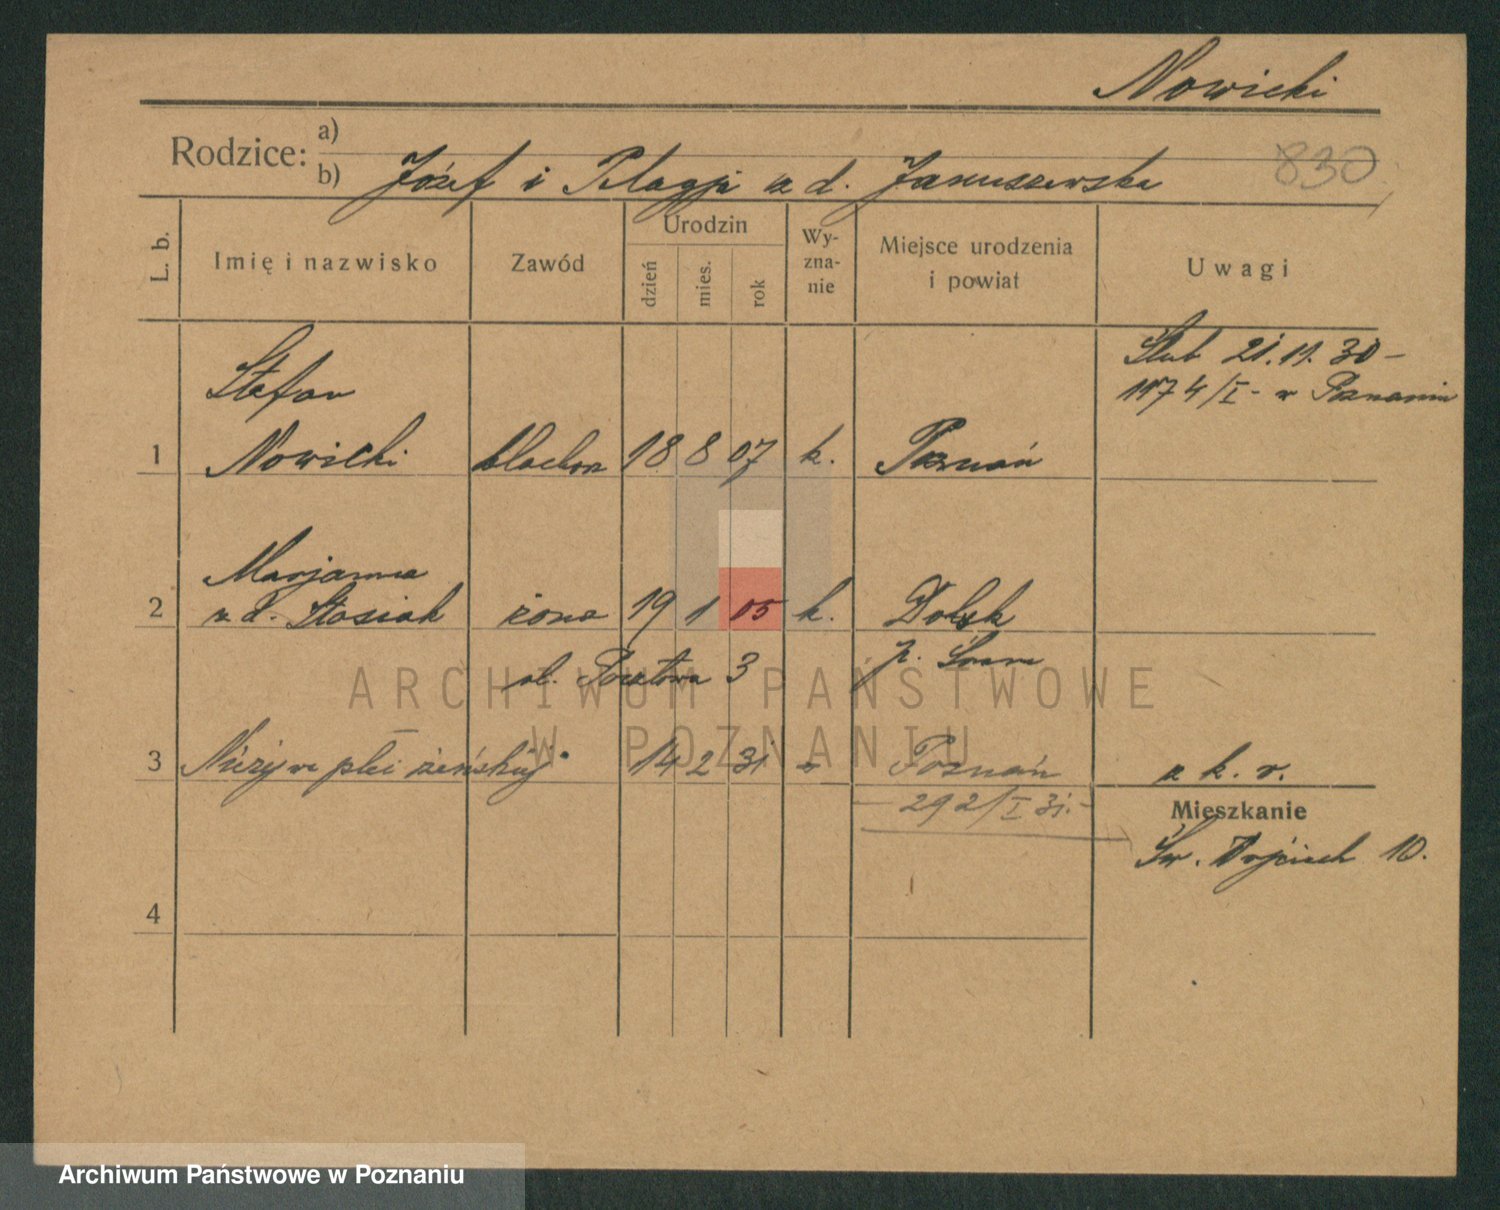 Nowicki
Rodzice: a)
b) Józef i Pelagja z d. Januszewska
830
L. b.
Imię i nazwisko
Zawód
Urodzin
dzień
mies.
rok
Wy-
zna-
nie
Miejsce urodzenia
i powiat
Uwagi
Ślub 21.11.30 -
1174/I - w Poznaniu
Stefan
1 Nowicki blacharz 18 8 07 k. Poznań
Marjanna
2 z d. Stasiak żona 19 1 05 k. Dolsk
ul. Pocztowa 3 p. Śrem
3 Nieżywe płci żeńskiej 14 2 31 - Poznań z k. r.
292/I 31.-
Mieszkanie
Św. Wojciech 10.
4
ARCHIWUM PAŃSTWOWE
W POZNANIU
Archiwum Państwowe w Poznaniu